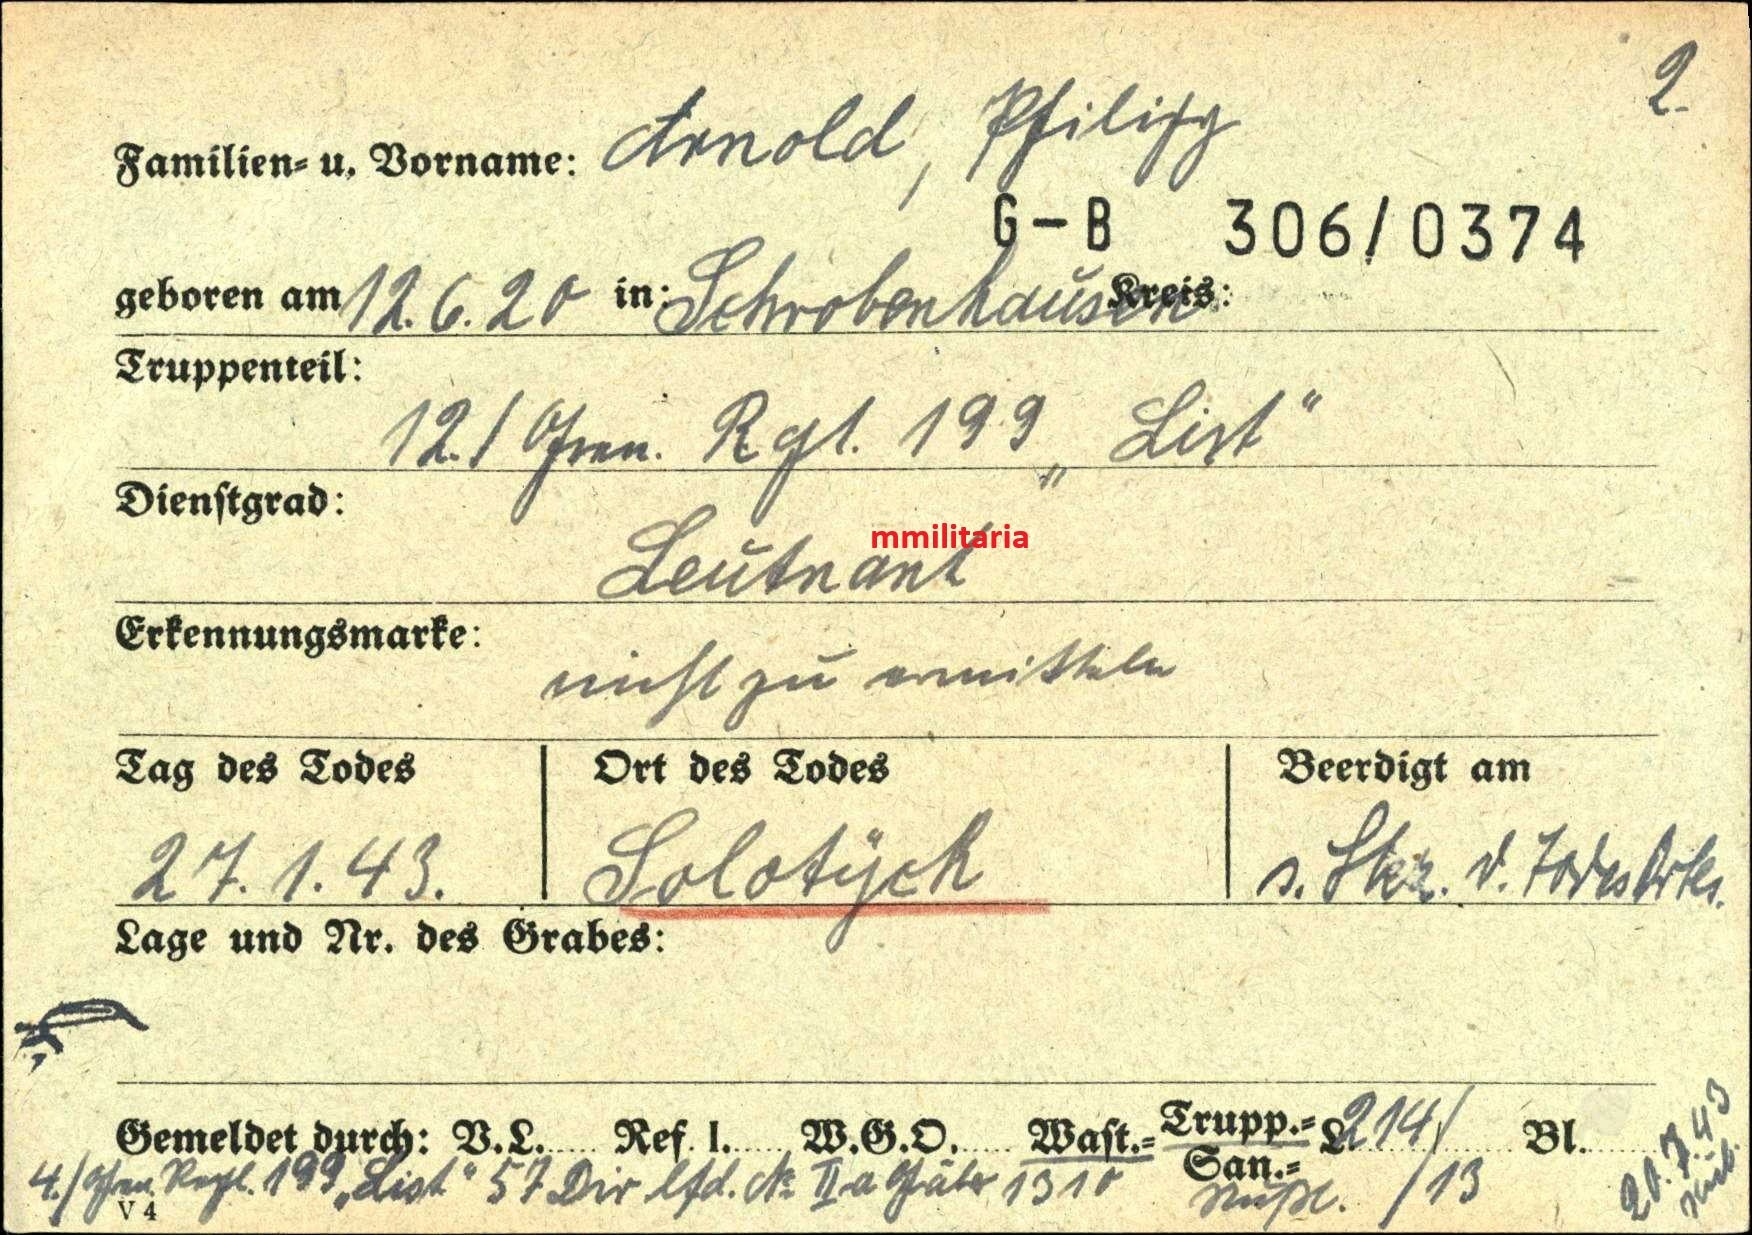 2.
Familien- u. Vorname: Arnold, Philipp
G-B 306/0374
geboren am 12.6.20 in: Schrobenhausen Kreis:
Truppenteil:
12./Gren. Rgt. 199 „List“
Dienstgrad:
Leutnant
mmilitaria
Erkennungsmarke:
nicht zu ermitteln
Tag des Todes Ort des Todes Beerdigt am
27.1.43. Solotÿck s. d. Todesortes.
Lage und Nr. des Grabes:
Gemeldet durch: V.L. Ref. 1. W.G.O. Wast.= Trupp.= San.= L 214/ Bl.
4./Gren. Regt. 199 „List“ 57 Div lfd. № IIa Gräber 1310 /13
20.7.43
V 4